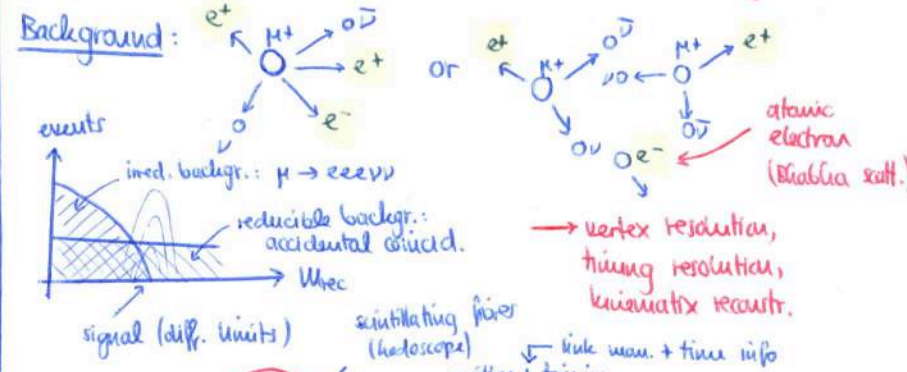 Background:
e+ μ+ ν̄ e+ e- ν
or
e+ μ+ ν̄ ν e-
μ+ e+ ν ν̄
atomic
electron
(Bhabha scatt.)
events
irred. backgr.: μ → eeeνν
reducible backgr.:
accidental coincid.
mrec
signal (diff. limits)
→ vertex resolution,
timing resolution,
kinematix reconstr.
scintillating fibres
(hodoscope)
link mom. + time info